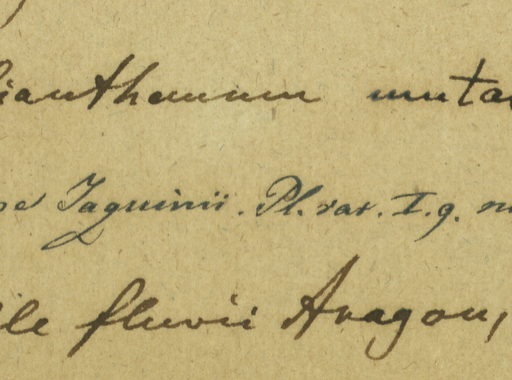 ianthemum muta
pe Jaquinii. Pl. rar. I. g. n
le fluvii Aragon,